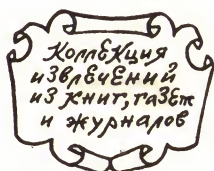 КоллЕКция
иЗвлЕчЕний
из Книг, газет
и журналов